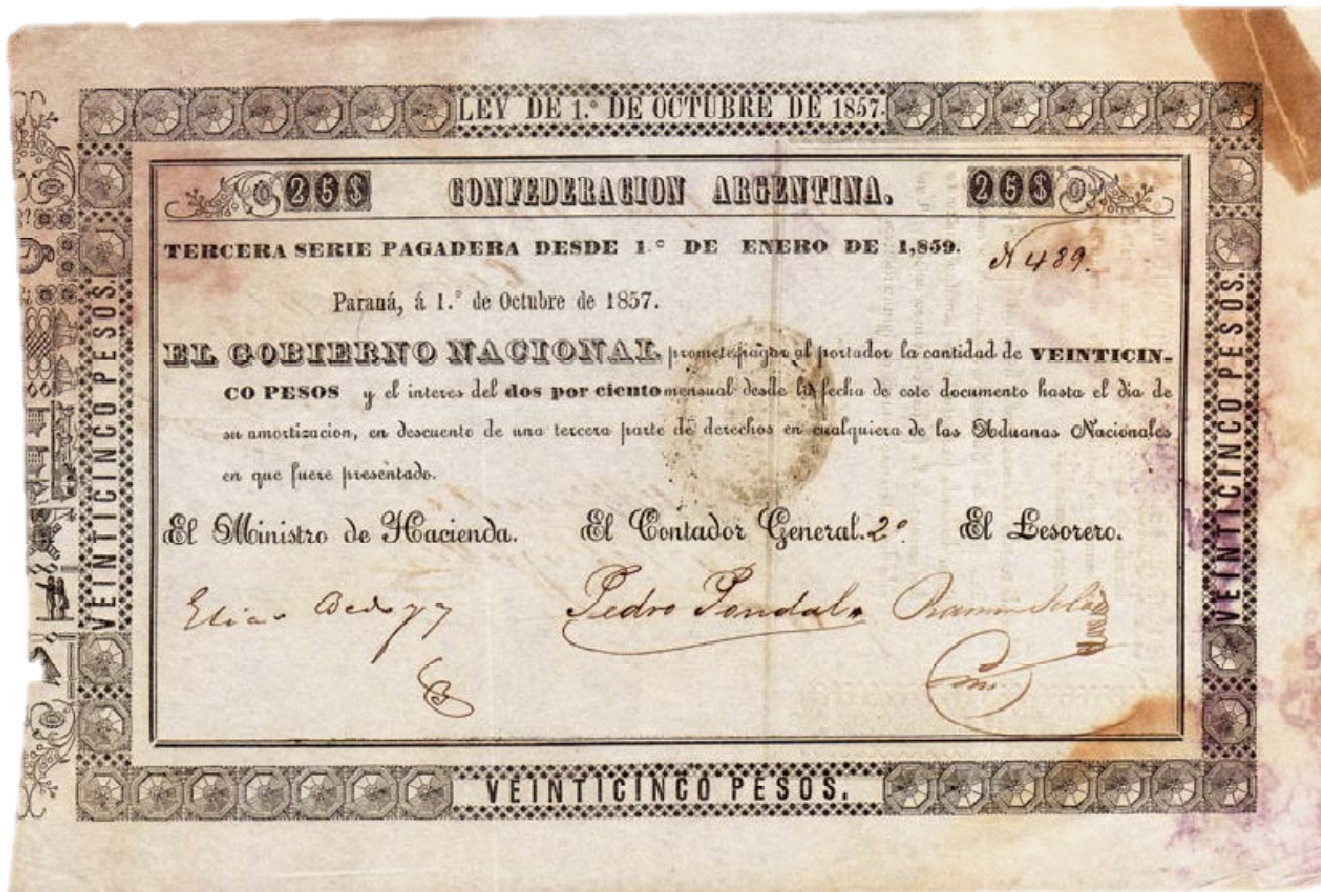 LEY DE 1.º DE OCTUBRE DE 1857.
25$ CONFEDERACION ARGENTINA. 25$
TERCERA SERIE PAGADERA DESDE 1º DE ENERO DE 1,859.
N 489.
Paraná, á 1.º de Octubre de 1857.
EL GOBIERNO NACIONAL promete pagar al portador la cantidad de VEINTICIN-
CO PESOS y el interes del dos por ciento mensual desde la fecha de este documento hasta el dia de
su amortizacion, en descuento de una tercera parte de derechos en cualquiera de las Aduanas Nacionales
en que fuere presentado.
El Ministro de Hacienda. El Contador General. 2º El Tesorero.
Elias Bedoya Pedro Pondal Ramon
VEINTICINCO PESOS.
VEINTICINCO PESOS.
VEINTICINCO PESOS.